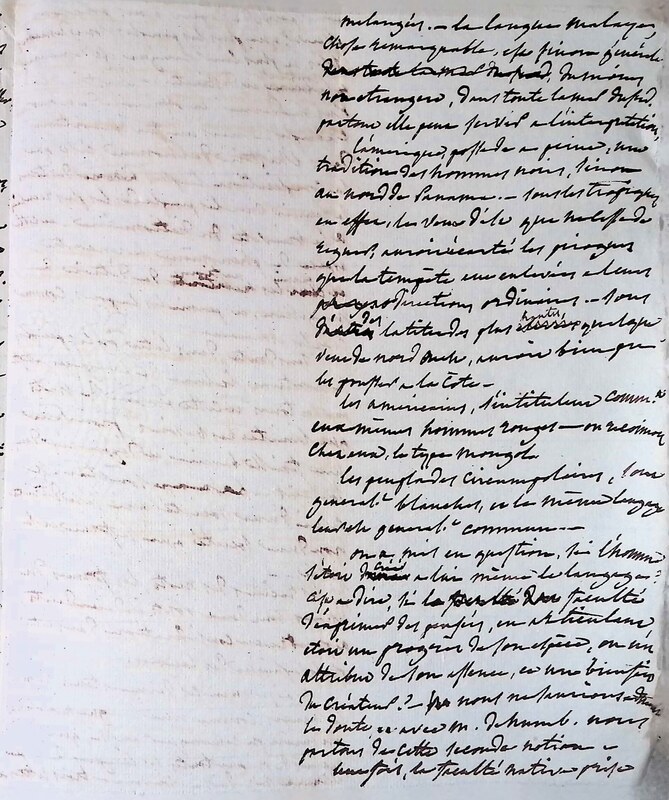 melangées. — la langue malaye,
chose remarquable, est sinon générale
du moins
non etrangere, dans toute la mer du sud,
partout elle peut servir a l'interpretation,
l'amerique, possede a peine, une
tradition des hommes noirs, sinon
au nord de Panama. — sous les tropiques
en effet, les vents d'est que ne cesse de
regner, auroient écarté les pirogues
que la tempête eut enlevées a leurs
directions ordinaires. — sous
des latitudes plus hautes, quelque
vent de nord ouest, auroit bien pu
les pousser a la côte —
les américains, s'intitulent comm.t
eux memes hommes rouges — on reconnoit
chez eux, le type mongol.
les peuplades circumpolaires, sont
general.t blanches, et le même langage
leur est general.t commun. —
on a mis en question, si l'homme
s'étoit créé a lui même le langage?
c'est a dire, si la faculté
d'exprimer des pensées, en articulant
étoit un progrès de son espèce, ou un
attribut de son essence, et une bienfait
du créateur? — nous ne saurions
le doute et avec m. de humb. nous
partons de cette seconde notion —
toutefois, la faculté native prise